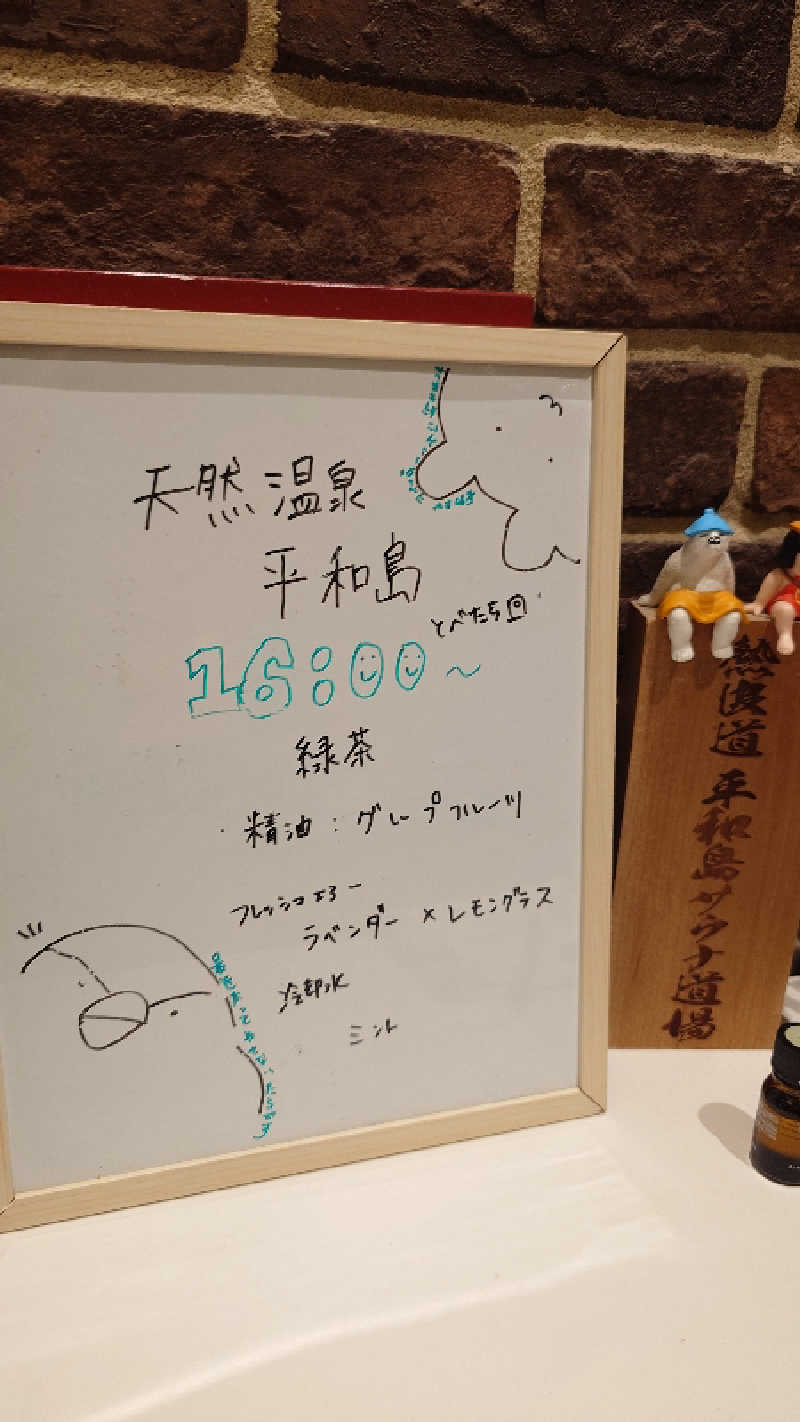 天然温泉
平和島
とべたら回
16:00～
緑茶
・精油：グレープフルーツ
フレッシュアロー
ラベンダー × レモングラス
冷却水
ミント
熱波道 平和島サウナ道場